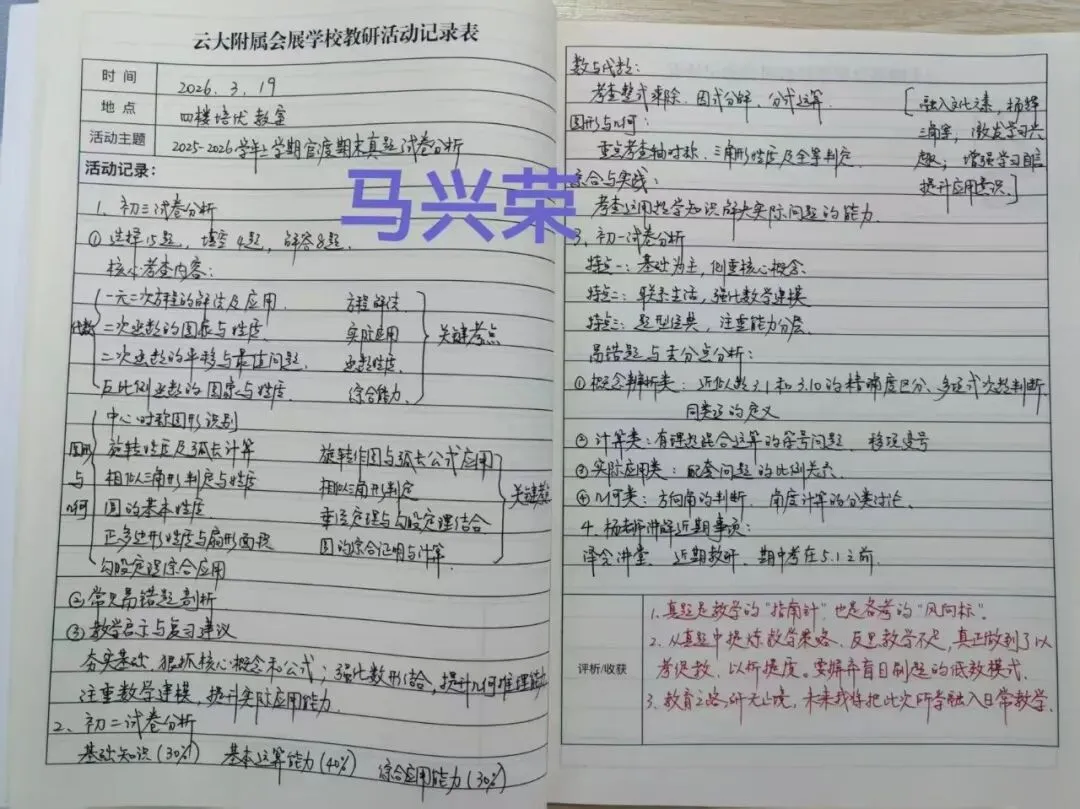 云大附属会展学校教研活动记录表
时间 2026.3.19
地点 四楼培优教室
活动主题 2025-2026学年上学期官渡期末真题试卷分析
活动记录：
马兴荣
1、初三试卷分析
①选择15题，填空4题，解答8题.
核心考查内容：
代数
一元二次方程的解法及应用. 方程解法
二次函数的图象与性质. 实际应用
二次函数的平移与最值问题. 函数性质.
反比例函数的图象与性质. 综合能力.
关键考点
图形与几何
中心对称图形识别
旋转性质及弧长计算 旋转作图与弧长公式应用
相似三角形判定与性质 相似三角形判定
圆的基本性质. 垂径定理与勾股定理结合
正多边形性质与扇形面积 圆的综合证明与计算.
勾股定理综合应用
关键考点
②常见易错题剖析.
③教学启示与复习建议
夯实基础，狠抓核心概念和公式；强化数形结合，提升几何推理能力
注重数学建模，提升实际应用能力.
2、初二试卷分析
基础知识(30%) 基本运算能力(40%) 综合应用能力(30%)
数与代数：
考查整式乘除、因式分解、分式运算.
图形与几何：
重点考查轴对称、三角形性质及全等判定.
综合与实践：
考查运用数学知识解决实际问题的能力.
[融入文化元素，杨辉
三角等，激发学习兴
趣；增强学习自信
提升应用意识.]
3、初一试卷分析
特点一：基础为主，侧重核心概念.
特点二：联系生活，强化数学建模
特点三：题型经典，注重能力分层.
易错题与丢分点分析：
①概念辨析类：近似数3.1和3.10的精确度区分、多项式次数判断.
同类项的定义
②计算类：有理数混合运算的符号问题. 移项变号
③实际应用类：配套问题的比例关系.
④几何类：方向角的判断、角度计算的分类讨论.
4、杨老师讲解近期事项：
泽会讲堂、近期教研、期中考在5.1之前.
评析/收获
1.真题是教学的“指南针”也是备考的“风向标”.
2.从真题中提炼教学策略、反思教学不足，真正做到了以
考促教，以析提质。要摒弃盲目刷题的低效模式.
3.教育之路，研无止境，未来我将把此次所学融入日常教学.